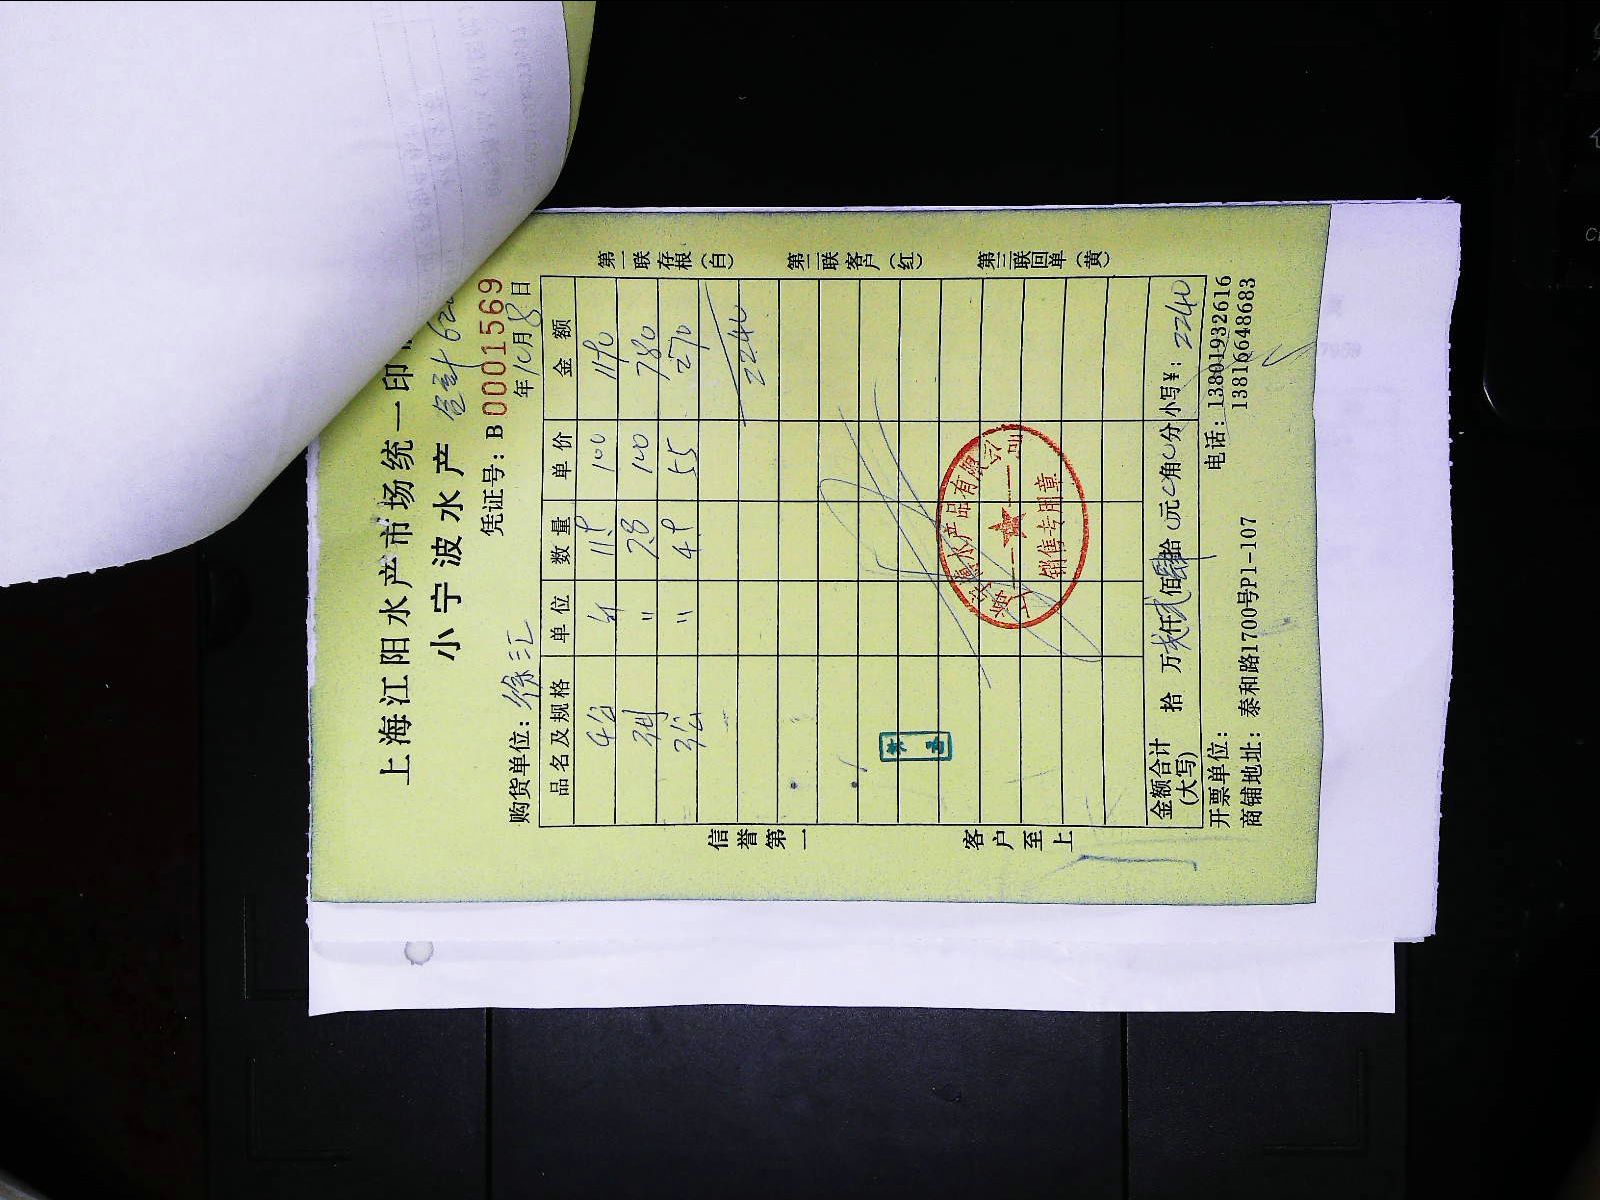 上海江阳水产市场统一印
小宁波水产
凭证号：B 0001569
购货单位：徐汇 年10月8日
品名及规格 单位 数量 单价 金额
4公 斤 11.9 100 1190
3公 〃 4.9 55 270
〃 7.8 100 780
2240
金额合计(大写) 拾 万 仟 贰 佰 肆拾 0元0角0分 小写¥：2240
开票单位： 电话：13801932616
商铺地址：泰和路1700号P1-107 13816648683
第一联存根(白)
第二联客户(红)
第三联回单(黄)
信誉第一
客户至上
水产品有限公司
销售专用章